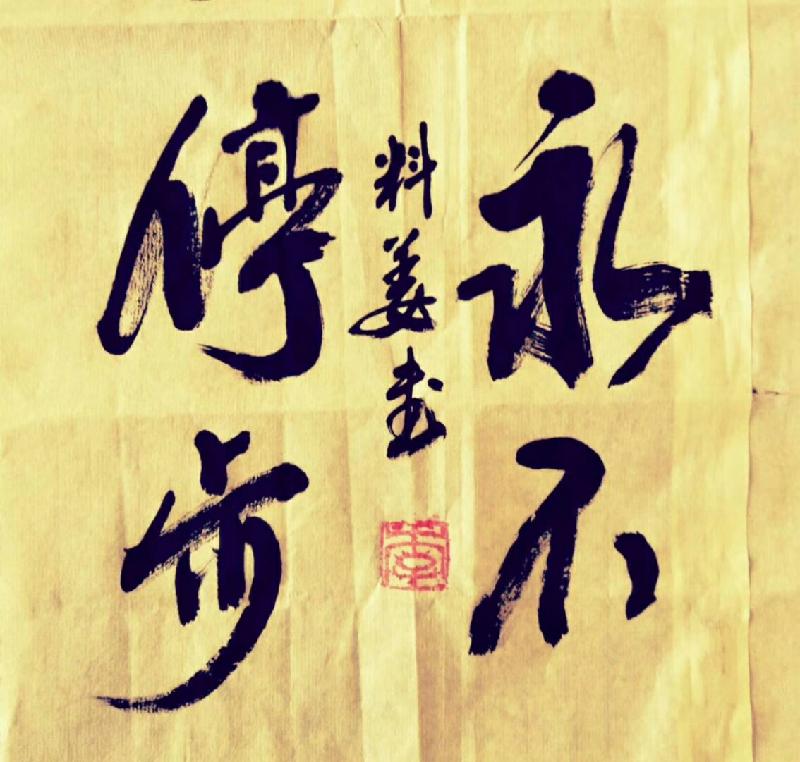 永不
停步
料姜書